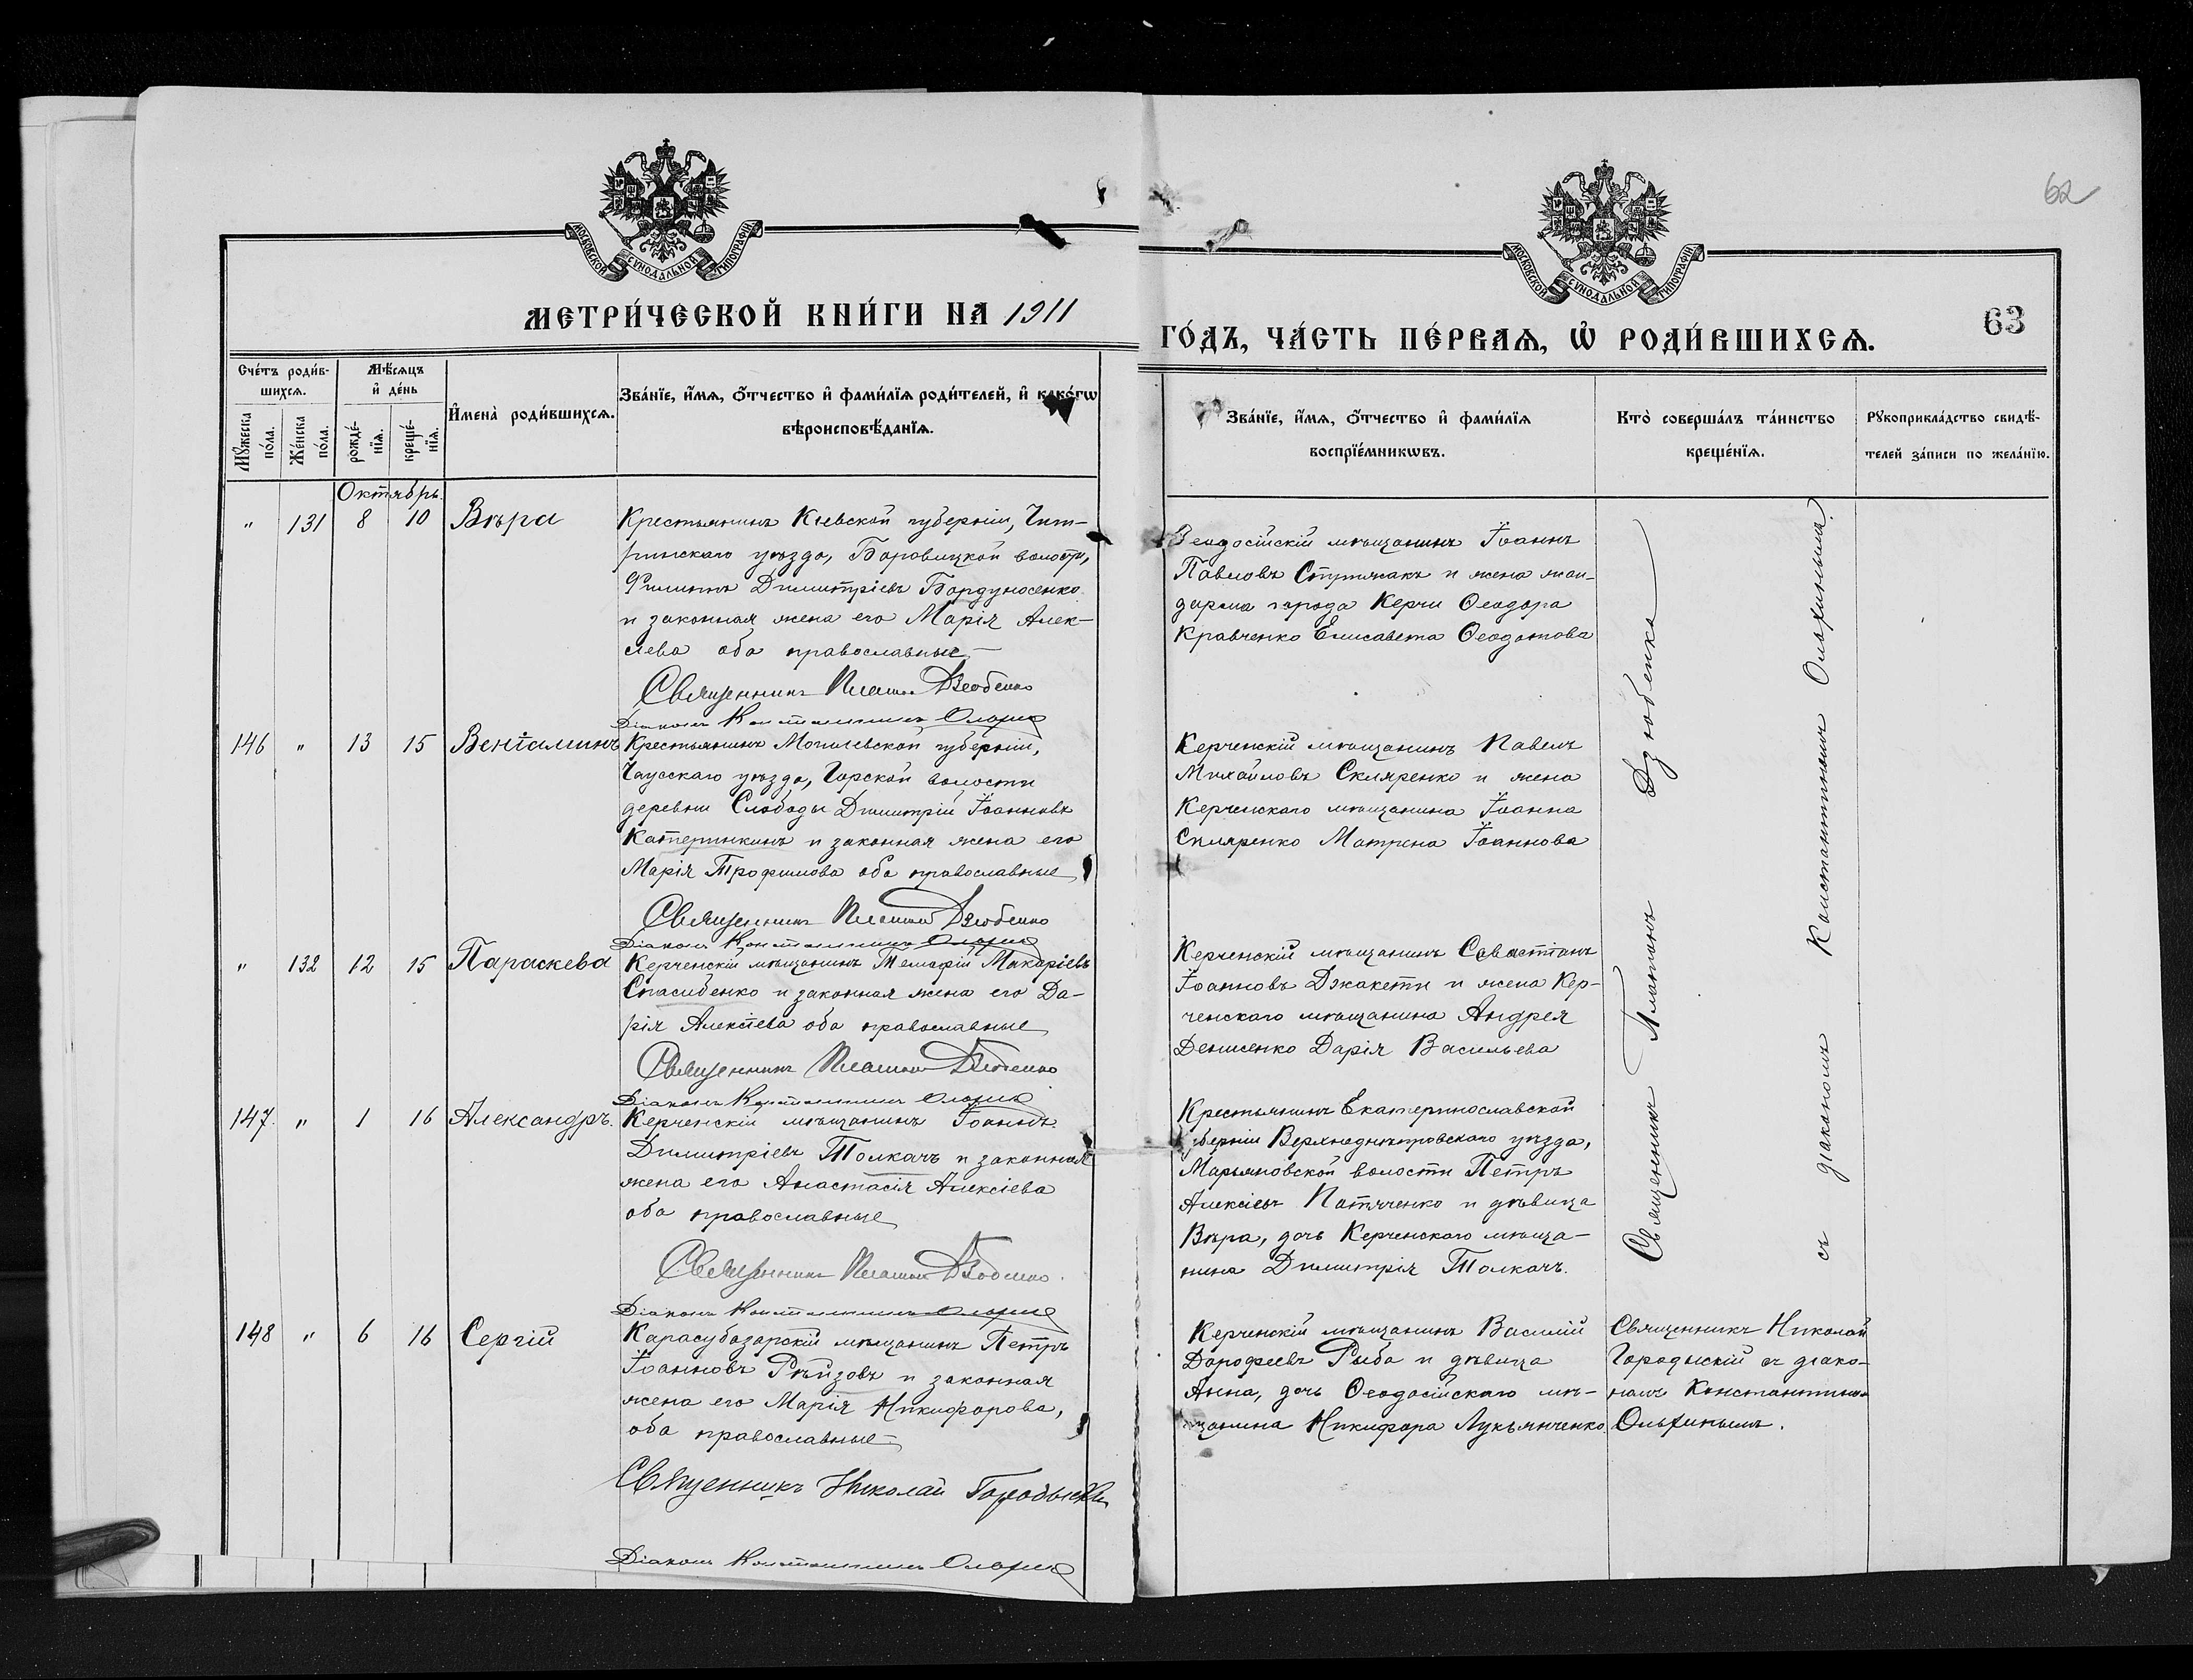 62
МОСКОВСКОЙ СѴНОДАЛЬНОЙ ТИПОГРАФІИ
МОСКОВСКОЙ СѴНОДАЛЬНОЙ ТИПОГРАФІИ
МЕТРИ́ЧЕСКОЙ КНИ́ГИ НА 1911
ГО́ДЪ, ЧА́СТЬ ПЕ́РВАѦ, Ѡ҆ РОДИ́ВШИХСѦ.
63
Сче́тъ роди́в-
шихсѧ.
Мꙋ́жеска по́ла.
Же́нска по́ла.
Мѣ́сѧцъ
и҆ де́нь
рожде́-
нїѧ.
креще́-
нїѧ.
И҆мена̀ роди́вшихсѧ.
Зва́нїе, и҆́мѧ, ѻ҆́тчество и҆ фами́лїѧ роди́телей, и҆ како́гѡ
вѣроисповѣ́данїѧ.
Зва́нїе, и҆́мѧ, ѻ҆́тчество и҆ фами́лїѧ
воспрїе́мникѡвъ.
Кто̀ соверша́лъ та́инство
креще́нїѧ.
Рꙋкоприкла́дство свидѣ́-
телей за́писи по жела́нїю.
Октябрь.
" 131 8 10 Вѣра
Крестьянинъ Кіевской губерніи, Чиги-
ринскаго уѣзда, Боровицкой волости,
Филиппъ Димитріевъ
и законная жена его Марія Алек-
сіева оба православные
Священникъ Платонъ Дзюбенко
Діаконъ Константинъ
Ѳеодосійскій мѣщанинъ Іоаннъ
Павловъ и жена жан-
дарма города Керчи Ѳеодора
Кравченко Елисавета Ѳеодотова
146 " 13 15 Веніаминъ
Крестьянинъ Могилевской губерніи,
Чаусскаго уѣзда, Горской волости
деревни Слободы Димитрій Іоанновъ
Катеринкинъ и законная жена его
Марія Трофимова оба православные
Священникъ Платонъ Дзюбенко
Діаконъ Константинъ
Керченскій мѣщанинъ Павелъ
Михайловъ Скляренко и жена
Керченскаго мѣщанина Іоанна
Скляренко Матрона Іоаннова
" 132 12 15 Параскева
Керченскій мѣщанинъ Макаріевъ
Спасибенко и законная жена его Да-
рія Алексіева оба православные
Священникъ Платонъ Дзюбенко
Діаконъ Константинъ
Керченскій мѣщанинъ Севастіанъ
Іоанновъ Джакети и жена Кер-
ченскаго мѣщанина Андрея
Денисенко Дарія Васильева
147 " 1 16 Александръ.
Керченскій мѣщанинъ Іоаннъ
Димитріевъ Толкачъ и законная
жена его Анастасія Алексіева
оба православные
Священникъ Платонъ Дзюбенко.
Діаконъ Константинъ
Крестьянинъ Екатеринославской
губерніи Верхнеднѣпровскаго уѣзда,
Марьяновской волости Петръ
Алексіевъ Патяченко и дѣвица
Вѣра, дочь Керченскаго мѣща-
нина Димитрія Толкачъ.
Священникъ Платонъ Дзюбенко
съ діакономъ Константиномъ
148 " 6 16 Сергій
Карасубазарскій мѣщанинъ Петръ
Іоанновъ и законная
жена его Марія Никифорова,
оба православные
Священникъ Николай Городыскій
Діаконъ Константинъ
Керченскій мѣщанинъ Василій
Дорофеевъ Рыба и дѣвица
Анна, дочь Ѳеодосійскаго мѣ-
щанина Никифора Лукьянченко
Священникъ Николай
Городыскій съ діако-
номъ Константиномъ